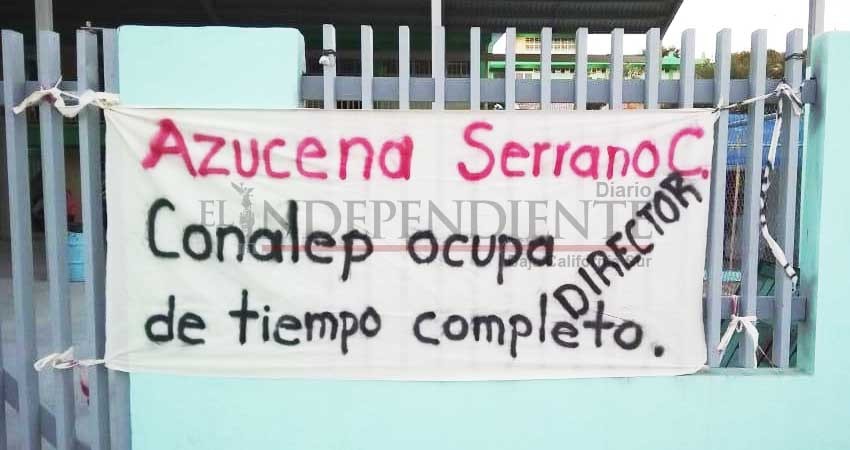 Azucena Serrano C.
Diario
EL INDEPENDIENTE
Baja California Sur
Conalep ocupa
DIRECTOR
de tiempo completo.